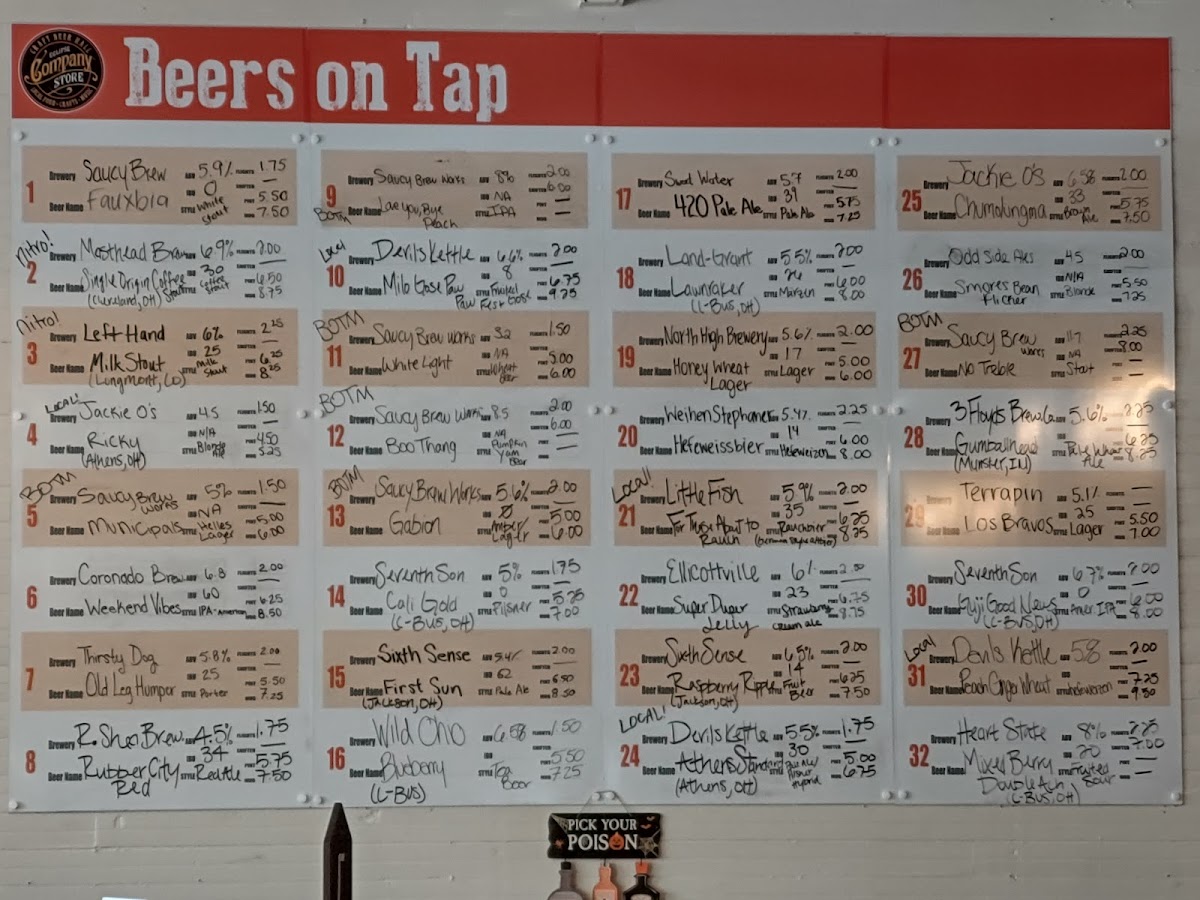 CRAFT BEER HALL
ECLIPSE
Company
STORE
LOCAL FOOD · CRAFTS · MUSIC
Beers on Tap
1 Brewery Saucy Brew ABV 5.9% FLIGHTS 1.75
IBU 0 SNIFTER —
Beer Name Fauxbia STYLE White Stout PINT 5.50
7.50
Nitro!
2 Brewery Masthead Brew ABV 6.9% FLIGHTS 2.00
Single Origin Coffee Stout IBU 30 SNIFTER —
Beer Name (Cleveland, OH) STYLE Coffee Stout PINT 6.50
8.75
Nitro!
3 Brewery Left Hand ABV 6% FLIGHTS 2.25
IBU 25 SNIFTER —
Beer Name Milk Stout STYLE Milk Stout PINT 6.25
(Longmont, CO) 8.25
LOCAL!
4 Brewery Jackie O's ABV 4.5 FLIGHTS 1.50
IBU N/A SNIFTER —
Beer Name Ricky STYLE Blonde Ale PINT 4.50
(Athens, OH) 5.25
BOTM
5 Brewery Saucy Brew Works ABV 5% FLIGHTS 1.50
IBU NA SNIFTER —
Beer Name Municipals STYLE Helles Lager PINT 5.00
6.00
6 Brewery Coronado Brew ABV 6.8 FLIGHTS 2.00
IBU 60 SNIFTER —
Beer Name Weekend Vibes STYLE IPA-American PINT 6.25
8.50
7 Brewery Thirsty Dog ABV 5.8% FLIGHTS 2.00
IBU 25 SNIFTER —
Beer Name Old Leg Humper STYLE Porter PINT 5.50
7.25
8 Brewery R. Shea Brew ABV 4.5% FLIGHTS 1.75
IBU 34 SNIFTER —
Beer Name Rubber City Red STYLE Red Ale PINT 5.75
7.50
9 Brewery Saucy Brew Works ABV 8% FLIGHTS 2.00
IBU NA SNIFTER 6.00
BOTM Beer Name Love you, Bye Peach STYLE IPA PINT —
—
Local
10 Brewery Devils Kettle ABV 6.6% FLIGHTS 2.00
IBU 8 SNIFTER —
Beer Name Milo Gose Paw Paw Fest STYLE Fruited Gose PINT 6.75
9.25
BOTM
11 Brewery Saucy Brew Works ABV 3.2 FLIGHTS 1.50
IBU NA SNIFTER —
Beer Name White Light STYLE Wheat Beer PINT 5.00
6.00
BOTM
12 Brewery Saucy Brew Works ABV 8.5 FLIGHTS 2.00
IBU NA SNIFTER 6.00
Beer Name Boo Thang STYLE Pumpkin Yam Beer PINT —
—
BOTM
13 Brewery Saucy Brew Works ABV 5.6% FLIGHTS 2.00
IBU 0 SNIFTER —
Beer Name Gabion STYLE Amber Lager PINT 5.00
6.00
14 Brewery Seventh Son ABV 5% FLIGHTS 1.75
IBU 0 SNIFTER —
Beer Name Cali Gold STYLE Pilsner PINT 5.25
(C-Bus, OH) 7.00
15 Brewery Sixth Sense ABV 5.4% FLIGHTS 2.00
IBU 62 SNIFTER —
Beer Name First Sun STYLE Pale Ale PINT 6.50
(Jackson, OH) 8.50
16 Brewery Wild Ohio ABV 6.58 FLIGHTS 1.50
Beer Name Blueberry STYLE Tea Beer PINT 5.50
(C-Bus) 7.25
17 Brewery Sweet Water ABV 5.7 FLIGHTS 2.00
IBU 39 SNIFTER —
Beer Name 420 Pale Ale STYLE Pale Ale PINT 5.75
7.25
18 Brewery Land-Grant ABV 5.5% FLIGHTS 2.00
IBU 24 SNIFTER —
Beer Name Lawnraker STYLE Marzen PINT 6.00
(C-Bus, OH) 8.00
19 Brewery North High Brewery ABV 5.6% FLIGHTS 2.00
IBU 17 SNIFTER —
Beer Name Honey Wheat Lager STYLE Lager PINT 5.00
6.00
20 Brewery Weihenstephaner ABV 5.4% FLIGHTS 2.25
IBU 14 SNIFTER —
Beer Name Hefeweissbier STYLE Hefeweizen PINT 6.00
8.00
Local!
21 Brewery Little Fish ABV 5.9% FLIGHTS 2.00
IBU 35 SNIFTER —
Beer Name For Those About to Rauch STYLE Rauchbier PINT 6.25
8.25
22 Brewery Ellicottville ABV 6% FLIGHTS 2.50
IBU 23 SNIFTER —
Beer Name Super Duper Jelly STYLE Strawberry cream ale PINT 6.75
8.75
23 Brewery Sixth Sense ABV 6.5% FLIGHTS 2.00
IBU 14 SNIFTER —
Beer Name Raspberry Ripple STYLE Fruit Beer PINT 6.25
(Jackson, OH) 7.50
LOCAL!
24 Brewery Devils Kettle ABV 5.5% FLIGHTS 1.75
IBU 30 SNIFTER —
Beer Name Athens Standard STYLE Pale Ale/ Pilsner Hybrid PINT 5.00
(Athens, OH) 6.75
25 Brewery Jackie O's ABV 6.58 FLIGHTS 2.00
IBU 33 SNIFTER —
Beer Name Chumolungma STYLE Brown Ale PINT 5.75
7.50
26 Brewery Odd Side Ales ABV 4.5 FLIGHTS 2.00
IBU N/A SNIFTER —
Beer Name Smores Bean Flicker STYLE Blonde PINT 5.50
7.25
BOTM
27 Brewery Saucy Brew Works ABV 11.7 FLIGHTS 2.25
IBU NA SNIFTER 8.00
Beer Name No Treble STYLE Stout PINT —
—
28 Brewery 3 Floyds Brew Co. ABV 5.6% FLIGHTS 2.25
Beer Name Gumballhead STYLE Pale Wheat Ale PINT 6.25
(Munster, IN) 8.25
29 Brewery Terrapin ABV 5.1% FLIGHTS —
IBU 25 SNIFTER —
Beer Name Los Bravos STYLE Lager PINT 5.50
7.00
30 Brewery Seventh Son ABV 6.7% FLIGHTS 2.00
IBU 0 SNIFTER —
Beer Name Fuji Good News STYLE Amer IPA PINT 6.00
(C-Bus, OH) 8.00
Local
31 Brewery Devils Kettle ABV 5.8 FLIGHTS 2.00
Beer Name Peach Ginger Wheat STYLE Hefeweizen PINT 7.25
9.50
32 Brewery Heart State ABV 8% FLIGHTS 2.25
IBU 20 SNIFTER 7.00
Beer Name Mixed Berry Double Ach STYLE Fruited Sour PINT —
(C-Bus, OH) —
PICK YOUR
POISON